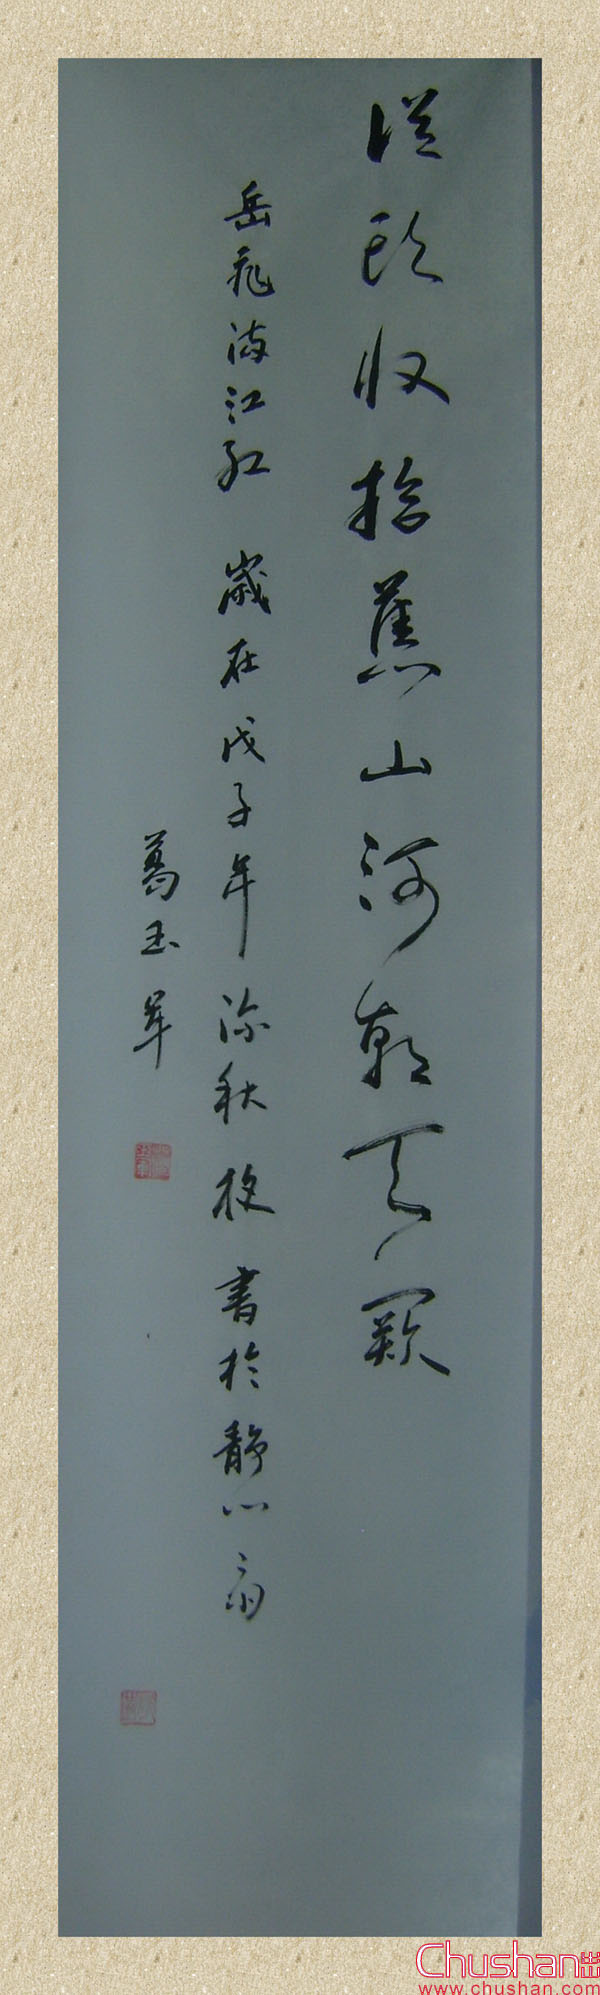 從頭收拾舊山河朝天闕
岳飛滿江紅 歲在戊子年深秋 書於靜心齋
葛玉軍
Chushan出
www.chushan.com